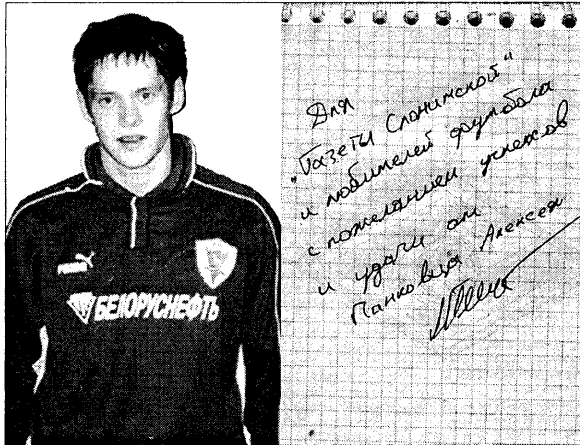 PUMA
БЕЛОРУСНЕФТЬ
Для
"Газеты Слонимской"
и любителей футбола
с пожеланием успехов
и удачи от
Панковца Алексея